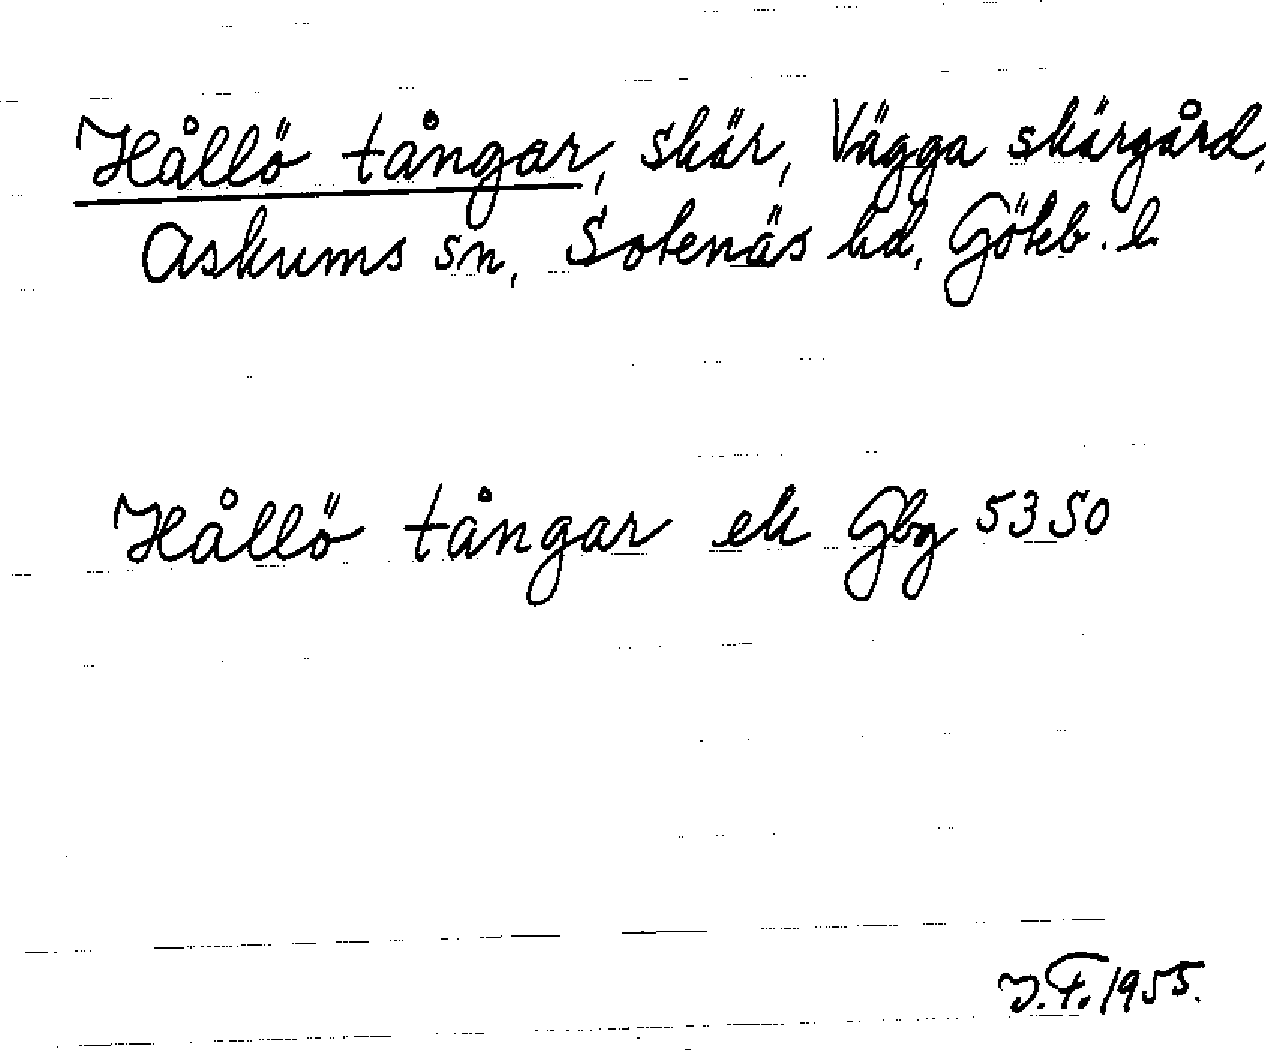 Hållö tångar, skär, Vägga skärgård,
Askums sn, Sotenäs hd, Göteb. l
Hållö tångar ek Gbg 53 SO
J.F. 1955.